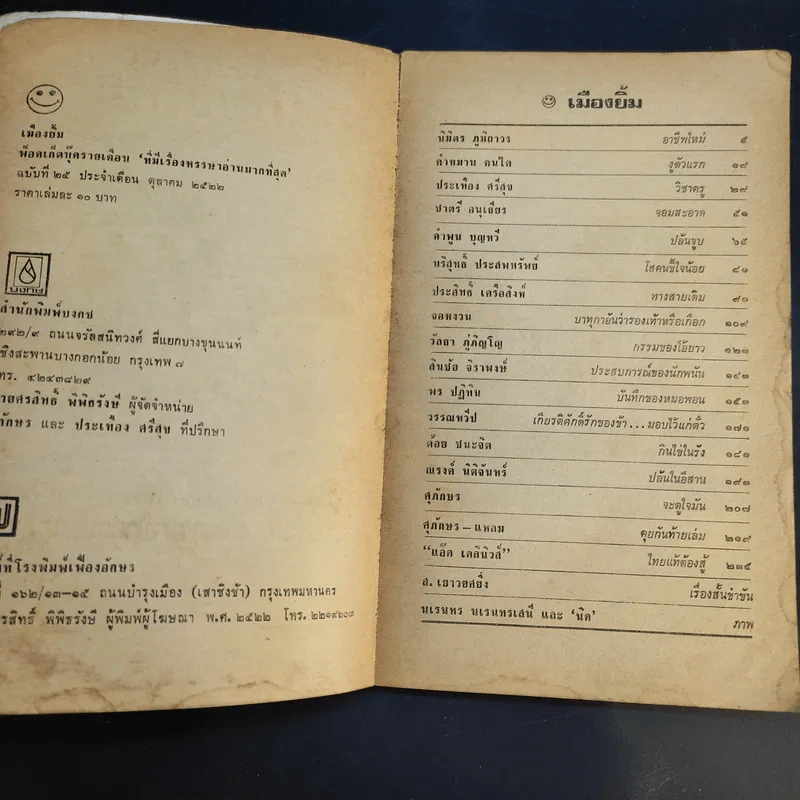 เมืองยิ้ม
พ็อคเก็ตบุ๊ครายเดือน ‘ที่มีเรื่องหรรษาอ่านมากที่สุด’
ฉบับที่ ๒๕ ประจำเดือน ตุลาคม ๒๕๒๒
ราคาเล่มละ ๑๐ บาท
บงกช
สำนักพิมพ์บงกช
๒๙๒/๙ ถนนจรัลสนิทวงศ์ สี่แยกบางขุนนนท์
เชิงสะพานบางกอกน้อย กรุงเทพ ๗
โทร. ๔๒๔๓๘๒๙
นายศรสิทธิ์ พิพิธรังษี ผู้จัดจำหน่าย
ศุภักษร และ ประเทือง ศรีสุข ที่ปรึกษา
ที่โรงพิมพ์เฟื่องอักษร
๑๖๒/๑๓–๑๕ ถนนบำรุงเมือง (เสาชิงช้า) กรุงเทพมหานคร
ศรสิทธิ์ พิพิธรังษี ผู้พิมพ์ผู้โฆษณา พ.ศ. ๒๕๒๒ โทร. ๒๒๑๙๖๐๓
เมืองยิ้ม
นิมิตร ภูมิถาวร อาชีพใหม่ ๕
คำหมาน คนไค งูตัวแรก ๑๙
ประเทือง ศรีสุข วิชาครู ๒๙
ชาตรี อนุเธียร จอมสะอาด ๕๑
คำพูน บุญทวี ปล้นจูบ ๖๕
บริสุทธิ์ ประสพทรัพย์ โสคนขี้ใจน้อย ๘๑
ประสิทธิ์ เครือสิงห์ ทางสายเดิม ๙๑
จอหงวน บาทุกาอันว่ารองเท้าหรือเกือก ๑๐๙
วัลยา ภู่ภิญโญ กรรมของไอ้ยาว ๑๒๓
สินชัย จิราพงษ์ ประสบการณ์ของนักพนัน ๑๔๓
พร ปฏิทิน บันทึกของหมอพอน ๑๕๓
วรรณทวีป เกียรติศักดิ์รักของข้า...มอบไว้แก่ตั๋ว ๑๗๑
ด้อย ชนะจิต กินไข่ในรัง ๑๘๑
ณรงค์ นิติจันทร์ ปล้นในอีสาน ๑๙๓
ศุภักษร จะตูใจมัน ๒๐๗
ศุภักษร–แหลม คุยกันท้ายเล่ม ๒๑๙
“แอ๊ด เดลินิวส์” ไทยแท้ต้องสู้ ๒๑๕
ส. เยาวยศยิ่ง เรื่องสั้นขำขัน
นเรนทร นเรนทรเสนี และ ‘นิด’ ภาพ